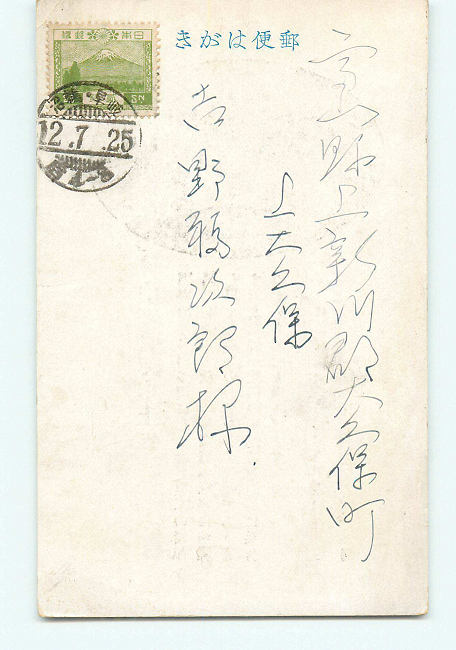 きがは便郵
富山縣上新川郡大久保町
上大久保
吉野福次郎様
日本郵便
12.7.25
岐阜